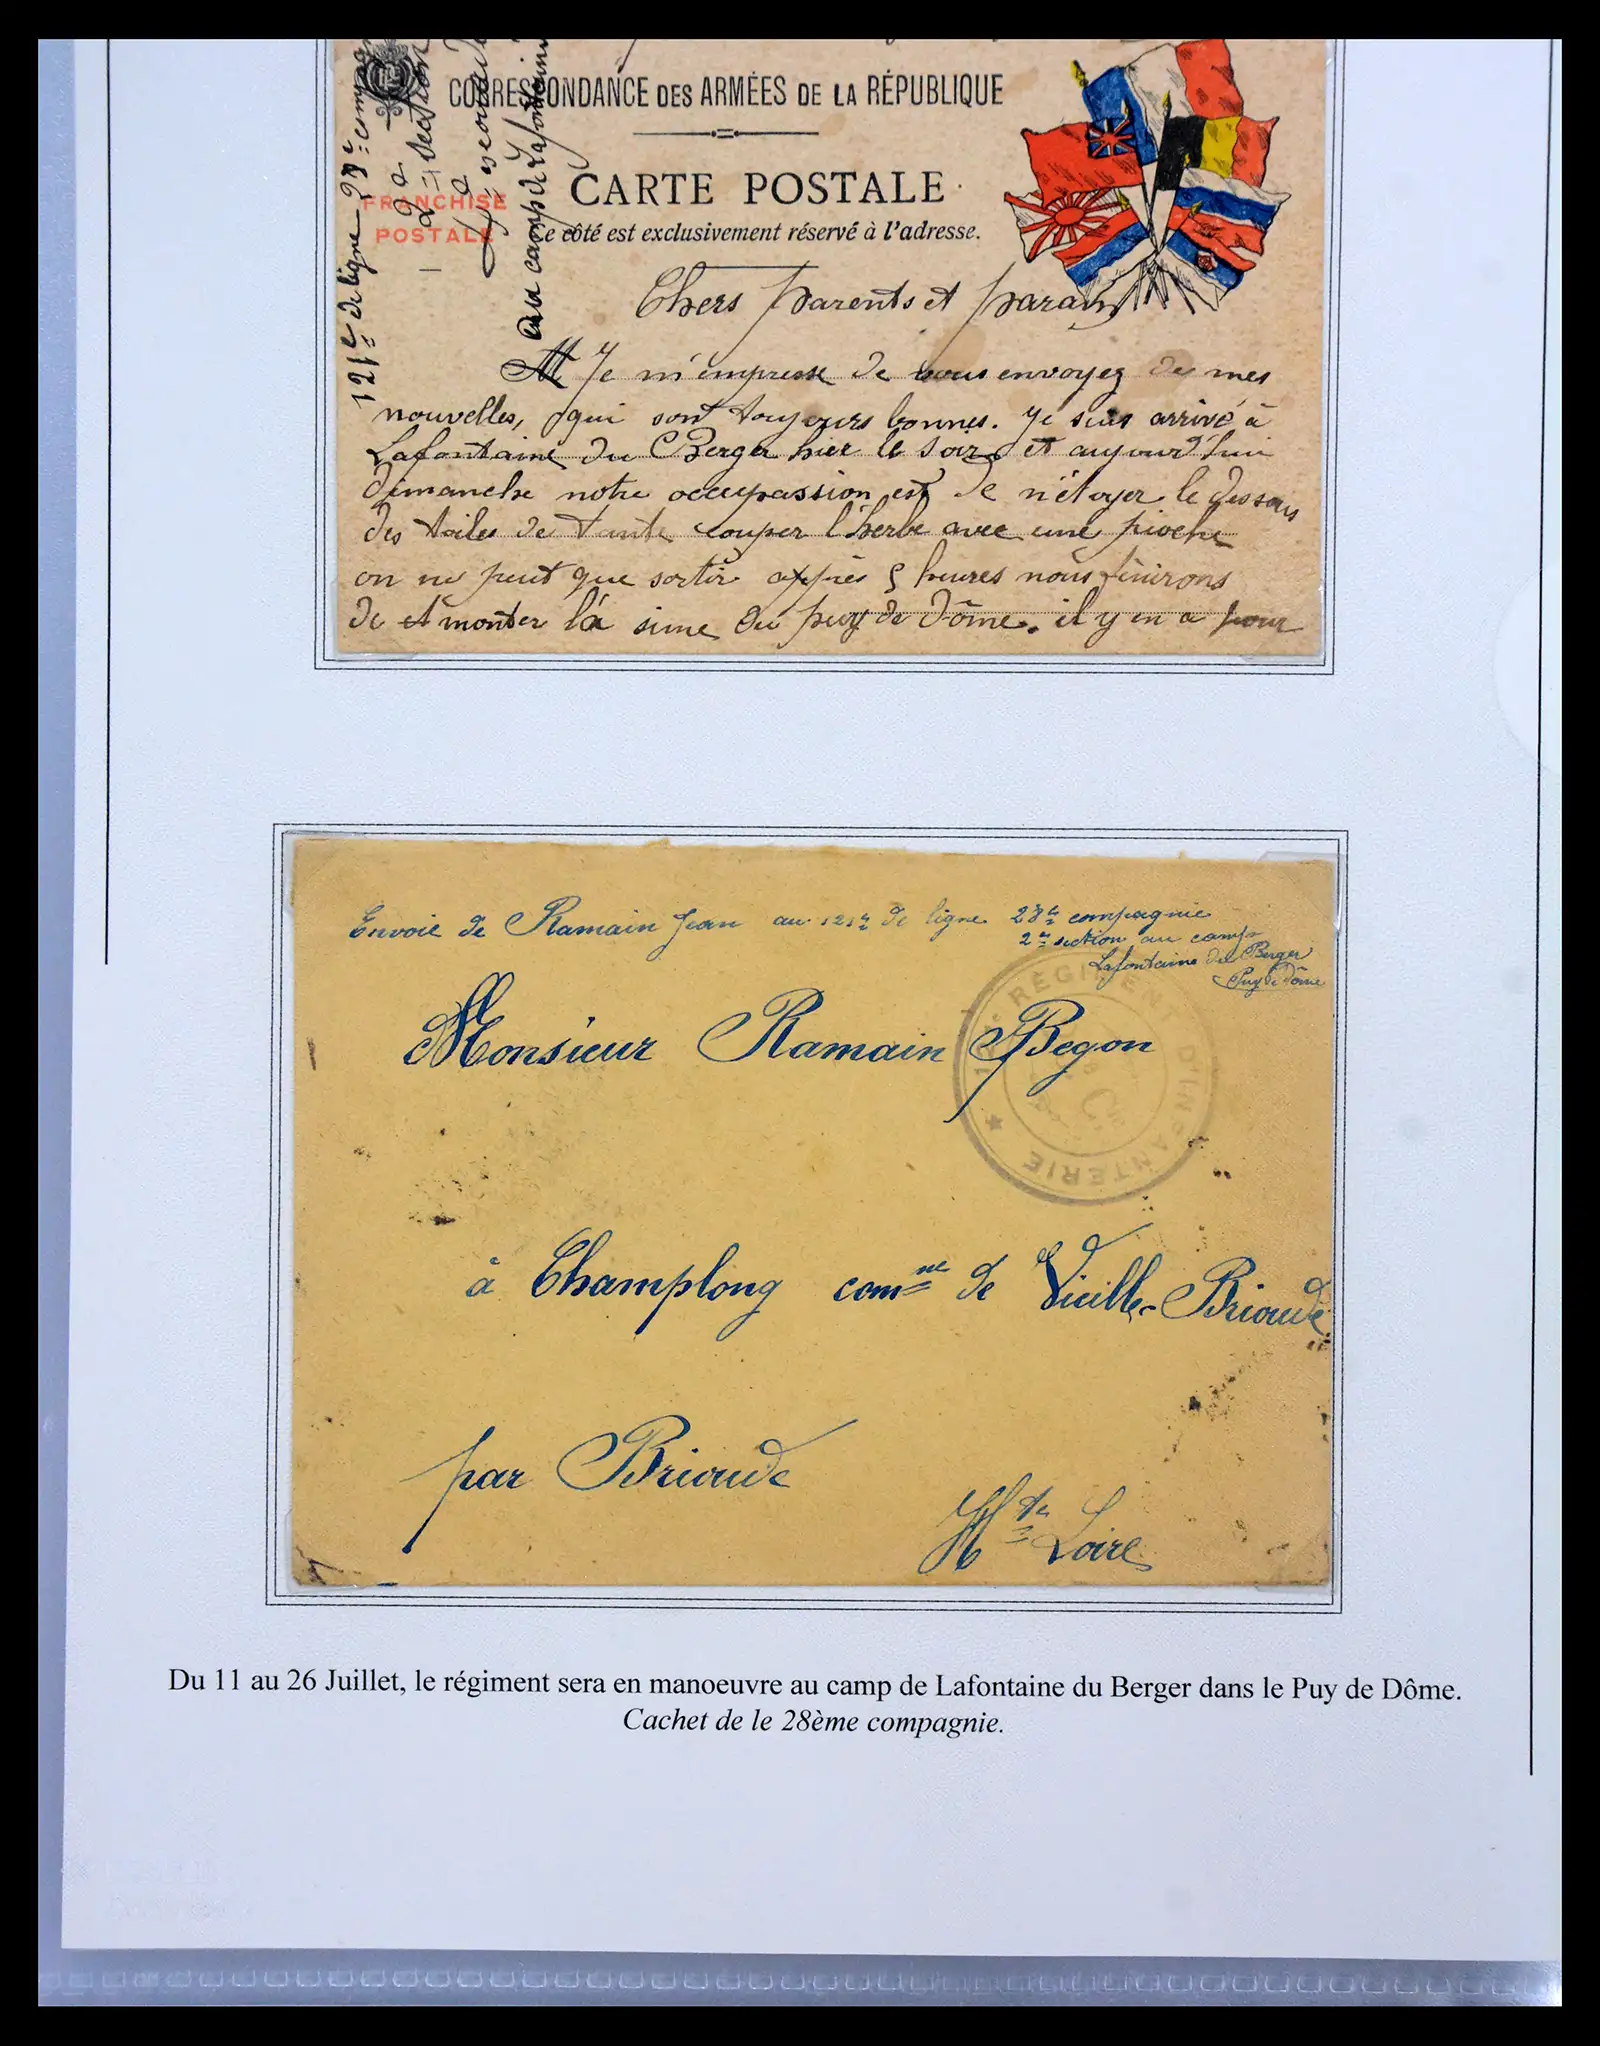 CORRESPONDANCE DES ARMÉES DE LA RÉPUBLIQUE
CARTE POSTALE
Ce côté est exclusivement réservé à l'adresse.
FRANCHISE
POSTALE
121e de ligne 28e compagnie
2e section
4e escouade
au camp de Lafontaine
Chers parents et parain
Je m'empresse de vous envoyez de mes
nouvelles, qui sont toujours bonnes. Je suis arrivé à
Lafontaine du Berger hier le soir et aujourd'hui
dimanche notre occupassion est de n'étoyer le dessous
des toiles de tante couper l'herbe avec une pioche
on ne peut que sortir apprès 5 heures nous finirons
de monter là sime du puy de Dôme. il y en a pour
Envoie de Ramain Jean au 121e de ligne 28e compagnie
2e section au camp
Lafontaine du Berger
Puy de Dôme
121e RÉGIMENT D'INFANTERIE
28 Cie
Monsieur Ramain Begon
à Champlong comne de Vieille-Brioude
par Brioude
Hte Loire
Du 11 au 26 Juillet, le régiment sera en manoeuvre au camp de Lafontaine du Berger dans le Puy de Dôme.
Cachet de le 28ème compagnie.